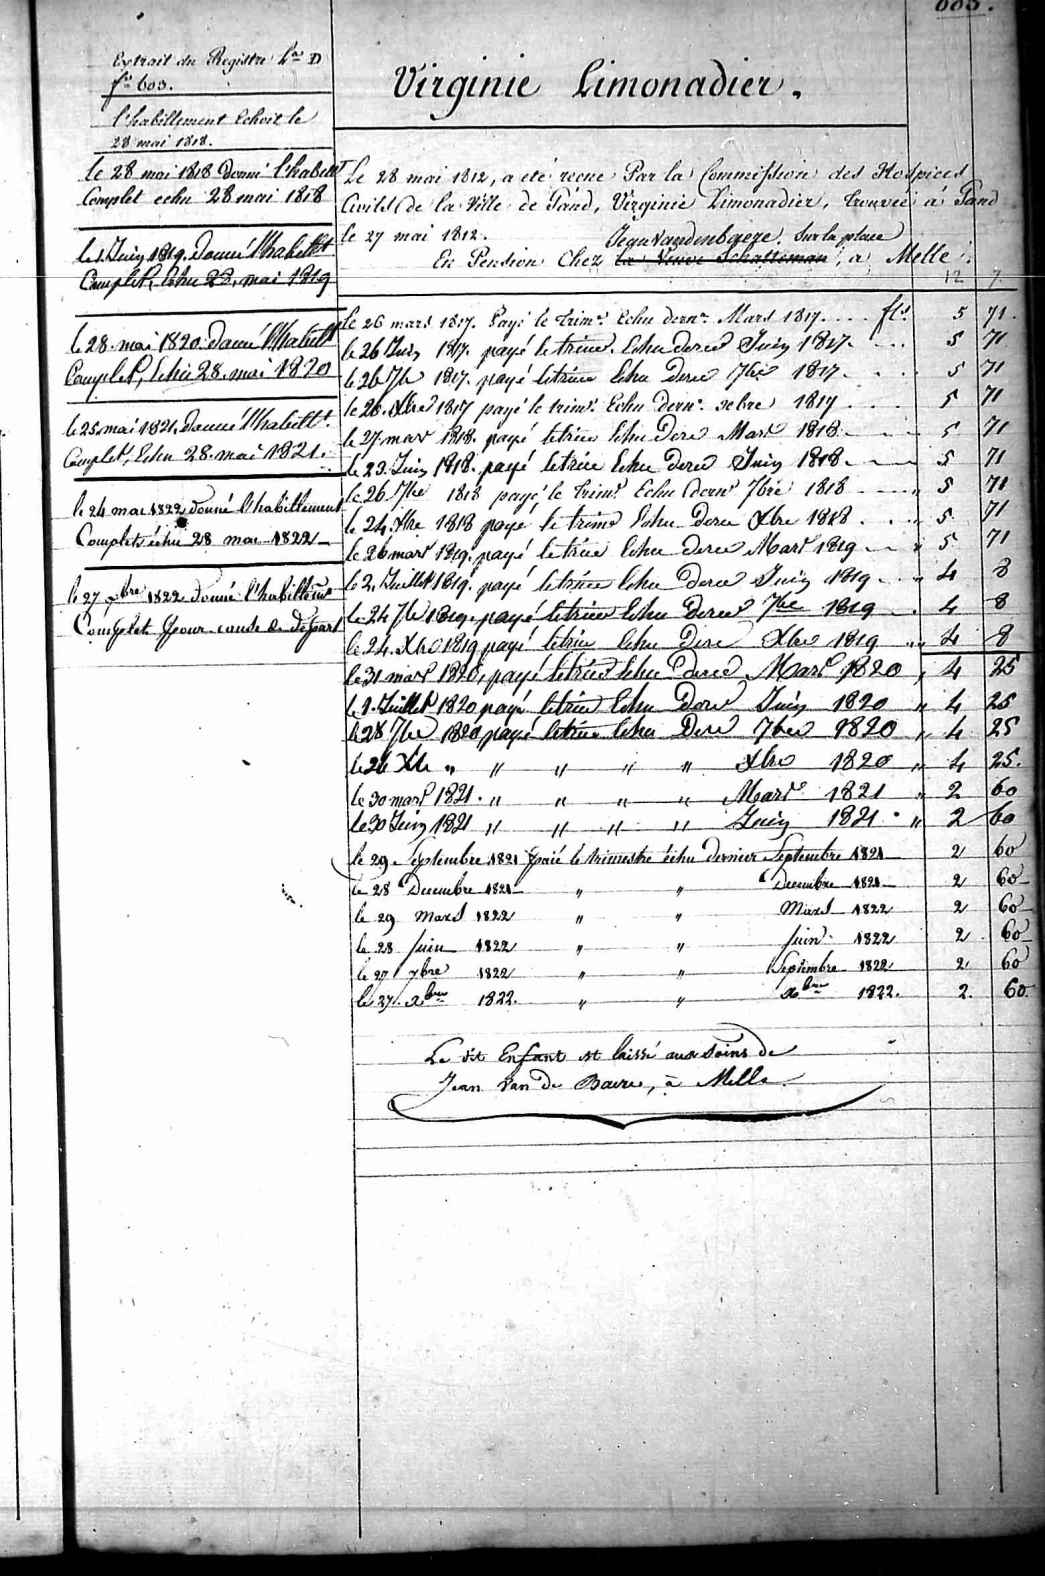 Extrait du Registre La D
fo 603.
l'habillement Echoit le
28 mai 1818.
le 28 mai 1818 donné l'habillt
Complet echu 28 mai 1818
le 1. Juin 1819. donné l'habillt
Complet, Echu 28. mai 1819
le 28. mai 1820. donné l'habillt
Complet, Echu 28. mai 1820
le 25 mai 1821. donné l'habillt.
Complet, Echu 28. mai 1821.
le 24 mai 1822 donné l'habillement
Complet échu 28 mai 1822
le 27 xbre 1822 donné l'habillemt
Complet pour cause de départ
Virginie Limonadier.
Le 28 mai 1812, a été recue Par la Commission des Hospices
Civils de la Ville de Gand, Virginie Limonadier, trouvée à Gand
le 27 mai 1812.
Sur la place
En Pension Chez la Veuve Schatteman, à Melle.
12 7
le 26 mars 1817. Payé le trimre. Echu dernr. Mars 1817. . . . fls. 5 71.
le 26 Juin 1817. payé le trime. Echu derer Juin 1817. . . . 5 71
le 26 7bre 1817. payé le trime Echu derer 7bre 1817 . . . . 5 71
le 26. Xbre 1817 payé le trimre. Echu dernr. xbre 1817 . . . . 5 71
le 27 mars 1818. payé le trime Echu derer Mars 1818. 5 71
le 23. Juin 1818. payé le trime Echu derer Juin 1818. 5 71
le 26. 7bre 1818 payé le trimre Echu dernr 7bre 1818 " 5 71
le 24. Xbre 1818 payé le trime Echu derer Xbre 1818 . . " 5 71
le 26 mars 1819. payé le trime Echu derer Mars 1819 " 5 71
le 2. Juillet 1819. payé le trime Echu derer Juin 1819 " 4 8
le 24 7bre 1819. payé le trime Echu derer 7bre 1819 4 8
le 24. Xbre 1819 payé le trime Echu derer Xbre 1819 " 4 8
le 31 mars 1820, payé le trime Echu derer Mars 1820 " 4 25
le 1. Juillet 1820 payé le trime Echu derer Juin 1820 " 4 25
le 28 7bre 1820 payé le trime Echu derer 7bre 1820 " 4 25
le 26 Xbre " " " " " Xbre 1820 " 4 25.
le 30 mars 1821. " " " " Mars 1821 " 2 60
le 30 Juin 1821 " " " " Juin 1821 " 2 60
le 29 Septembre 1821 paié le trimestre échu dernier Septembre 1821 2 60
le 28 Decembre 1821 " " Decembre 1821 2 60
le 29 Mars 1822 " " Mars 1822 2 60
le 28 juin 1822 " " juin 1822 2 60
le 27 7bre 1822 " " Septembre 1822 2 60
le 27. xbre 1822. " " xbre 1822. 2. 60.
Le dit Enfant est laissé aux soins de
Jean Van de Baere, à Melle.